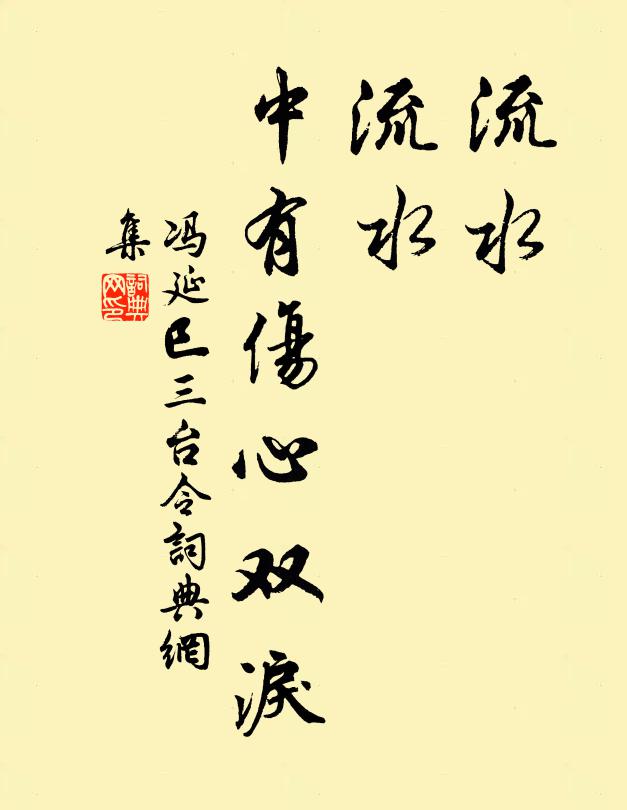 流水
流水
中有傷心双淚
冯延巳三台令詞典網
集
詞典
网印